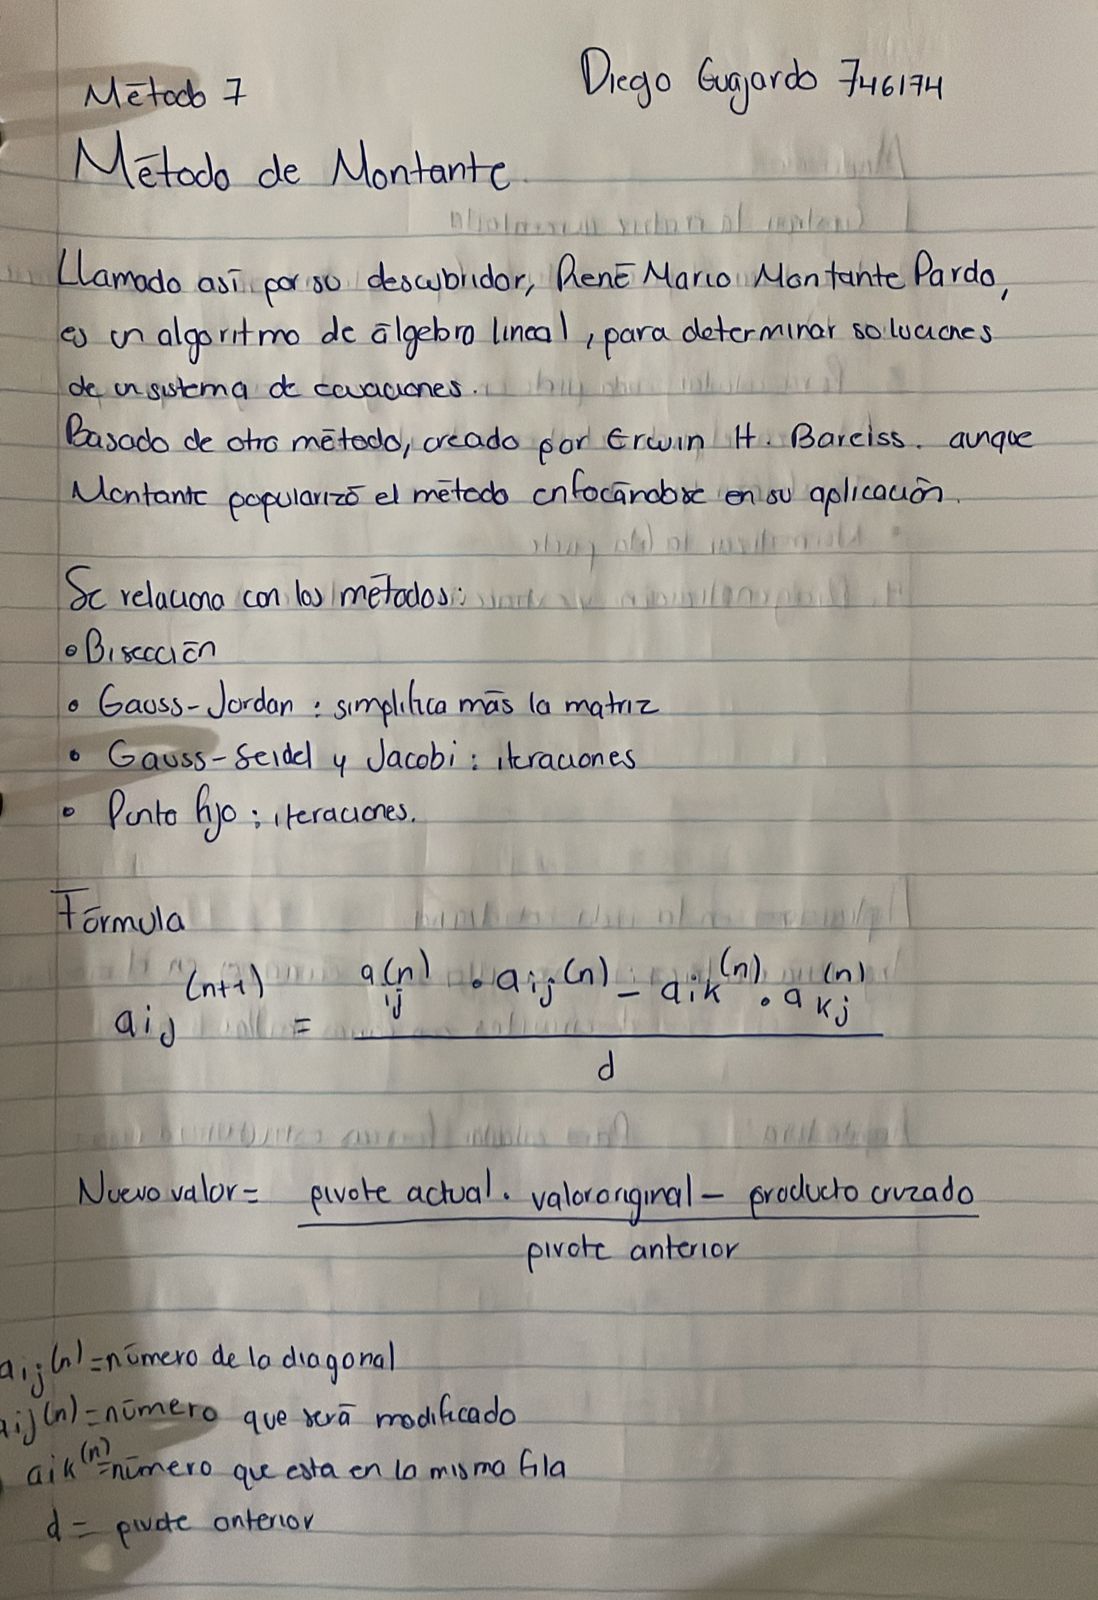 Método 7
Diego Guajardo 746174
Método de Montante
Llamado así por su descubridor, René Mario Montante Pardo,
es un algoritmo de álgebra lineal, para determinar soluciones
de un sistema de ecuaciones.
Basado de otro método, creado por Erwin H. Bareiss. aunque
Montante popularizó el método enfocándose en su aplicación.
Se relaciona con los métodos:
• Bisección
• Gauss-Jordan : simplifica más la matriz
• Gauss-Seidel y Jacobi : iteraciones
• Punto fijo ; iteraciones.
Fórmula
aij (n+1) = aij(n) · aij(n) - aik(n) · akj(n)
d
Nuevo valor = pivote actual · valor original - producto cruzado
pivote anterior
aij(n) = número de la diagonal
aij(n) = número que será modificado
aik(n) = número que esta en la misma fila
d = pivote anterior